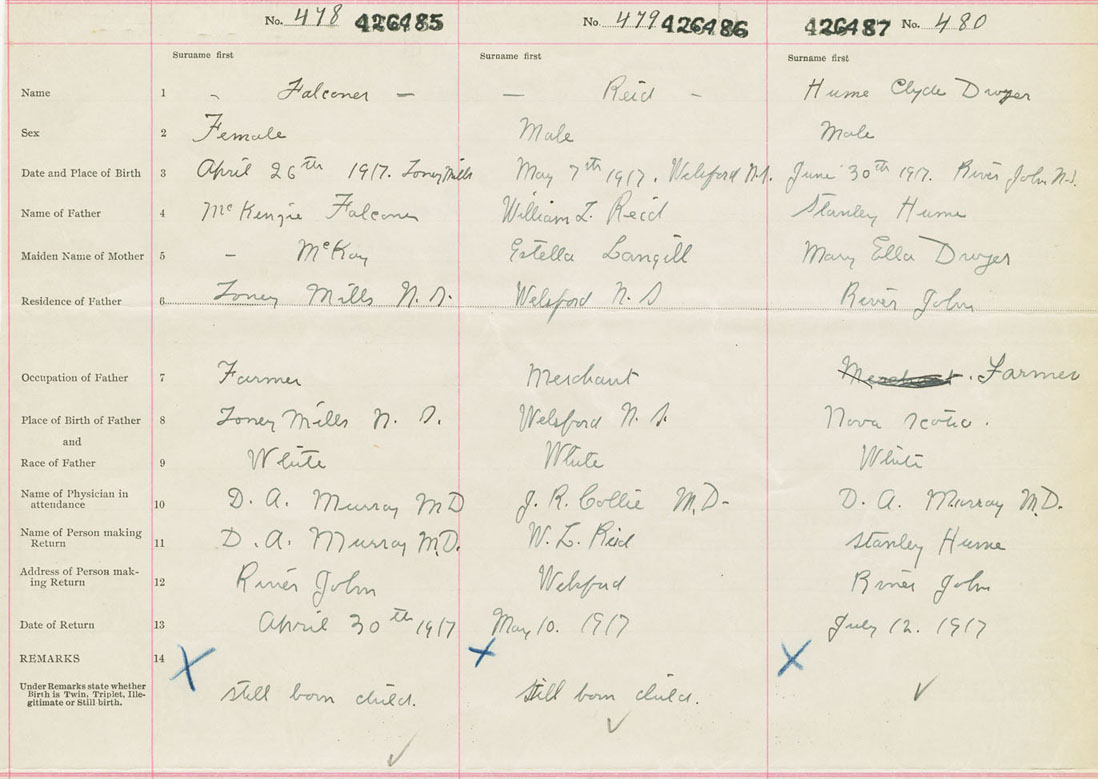 No. 478 426485 No. 479 426486 426487 No. 480
Surname first Surname first Surname first
Name 1 - Falconer - - Reid - Hume Clyde Dwyer
Sex 2 Female Male Male
Date and Place of Birth 3 April 26th 1917. Toney Mills May 7th 1917. Welsford N.S. June 30th 1917. River John N.S.
Name of Father 4 McKenzie Falconer William L. Reid Stanley Hume
Maiden Name of Mother 5 - McKay Estella Langill Mary Ella Dwyer
Residence of Father 6 Toney Mills N.S. Welsford N.S River John
Occupation of Father 7 Farmer Merchant Merchant. Farmer
Place of Birth of Father 8 Toney Mills N.S. Welsford N.S. Nova Scotia.
and
Race of Father 9 White White White
Name of Physician in
attendance 10 D. A. Murray MD J. R. Collie M.D- D. A. Murray M.D.
Name of Person making
Return 11 D. A. Murray M.D. W. L. Reid Stanley Hume
Address of Person mak-
ing Return 12 River John Welsford River John
Date of Return 13 April 30th 1917 May 10. 1917 July 12. 1917
REMARKS 14 X X X
Under Remarks state whether
Birth is Twin, Triplet, Ille-
gitimate or Still birth.
still born child. still born child.